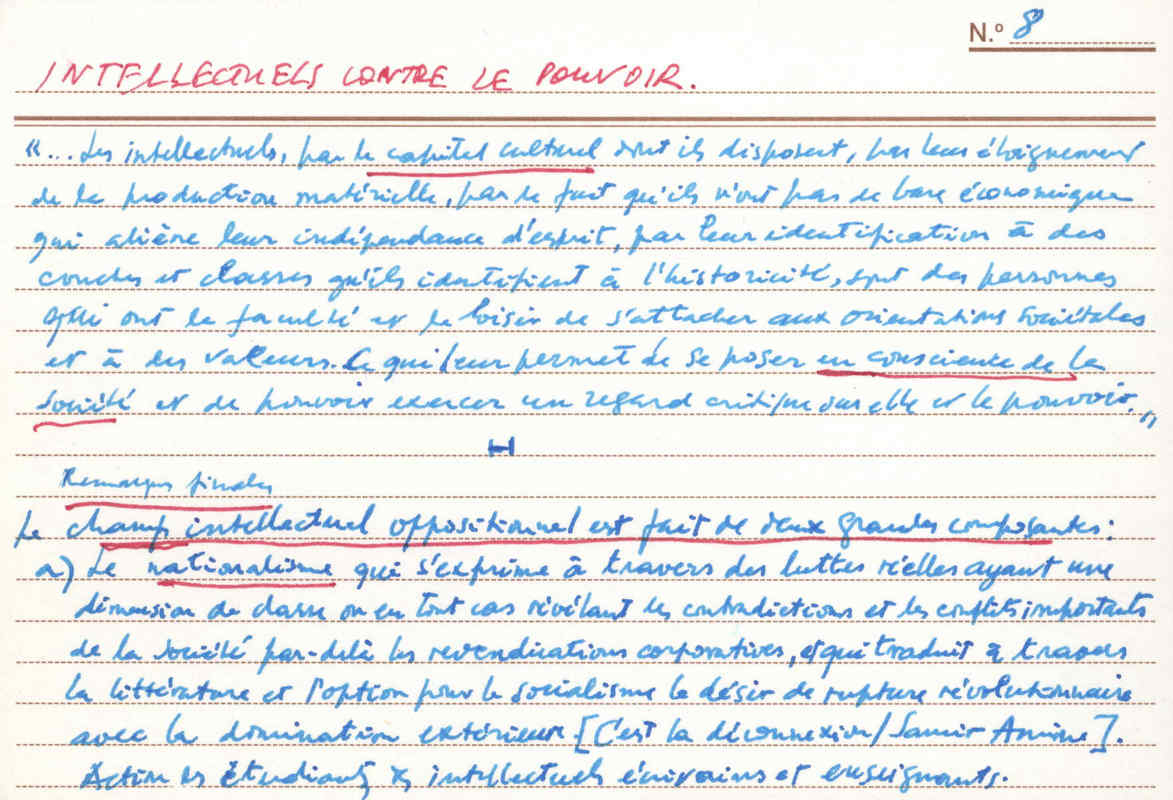 N.º 8
INTELLECTUELS CONTRE LE POUVOIR.
"... Les intellectuels, par le capital culturel dont ils disposent, par leur éloignement
de la production matérielle, par le fait qu'ils n'ont pas de base économique
qui aliène leur indépendance d'esprit, par leur identification à des
couches et classes qu'ils identifient à l'historicité, sont des personnes
qui ont la faculté et le loisir de s'attacher aux orientations sociétales
et à des valeurs. Ce qui leur permet de se poser en conscience de la
société et de pouvoir exercer un regard critique sur elle et le pouvoir."
Remarques finales
Le champ intellectuel oppositionnel est fait de deux grandes composantes :
a) Le nationalisme qui s'exprime à travers des luttes réelles ayant une
dimension de classe ou en tout cas révélant les contradictions et les conflits importants
de la société par-delà les revendications corporatives, et qui traduit à travers
la littérature et l'option pour le socialisme le désir de rupture révolutionnaire
avec la domination extérieure [C'est la déconnexion/Samir Amine].
Action des étudiants, intellectuels écrivains et enseignants.